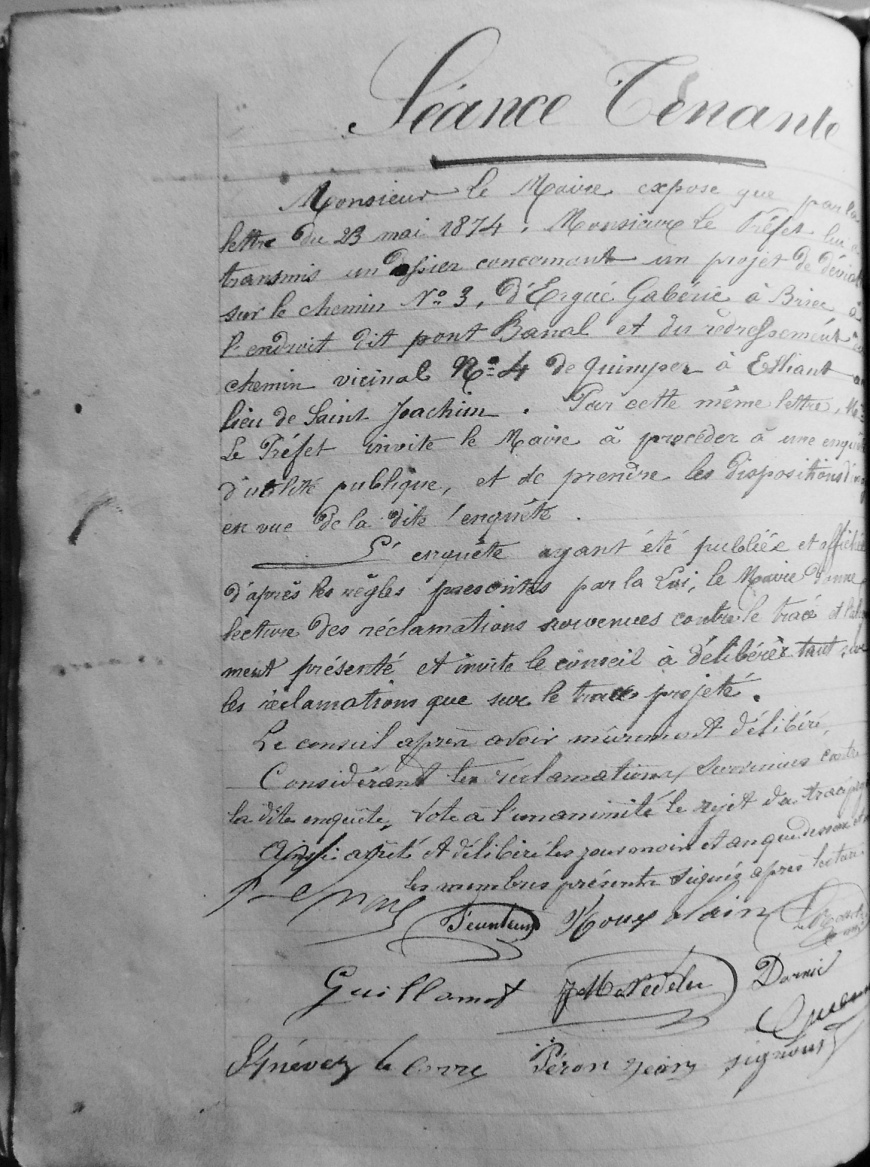 Séance Tenante
Monsieur le Maire expose que par la
lettre du 23 mai 1874, Monsieur le Préfet lui a
transmis un dossier concernant un projet de dévia
sur le chemin No 3, d'Ergué Gabéric à Briec à
l'endroit dit pont Banal et du redressement
chemin vicinal No 4 de Quimper à Elliant au
lieu de Saint Joachim. Par cette même lettre, Mr
Le Préfet invite le Maire à procéder à une enquête
d'utilité publique, et de prendre les dispositions
en vue de la dite l'enquête.
L'enquête ayant été publiée et affichée
d'après les règles prescrites par la Loi, le Maire donne
lecture des réclamations survenues contre le tracé
ment présenté et invite le conseil à délibérer tant sur
les réclamations que sur le tracé projeté.
Le conseil après avoir mûrement délibéré,
Considérant les réclamations survenues contre
la dite enquête, Vote à l'unanimité le rejet du tracé
Ainsi arrêté et délibéré les jour mois et an que dessus et
les membres présents signés après lecture
Feunteun Rouz Alain
Guillamot J M Nédélec Dornic
Stnéven le Corre Péron Jean signons